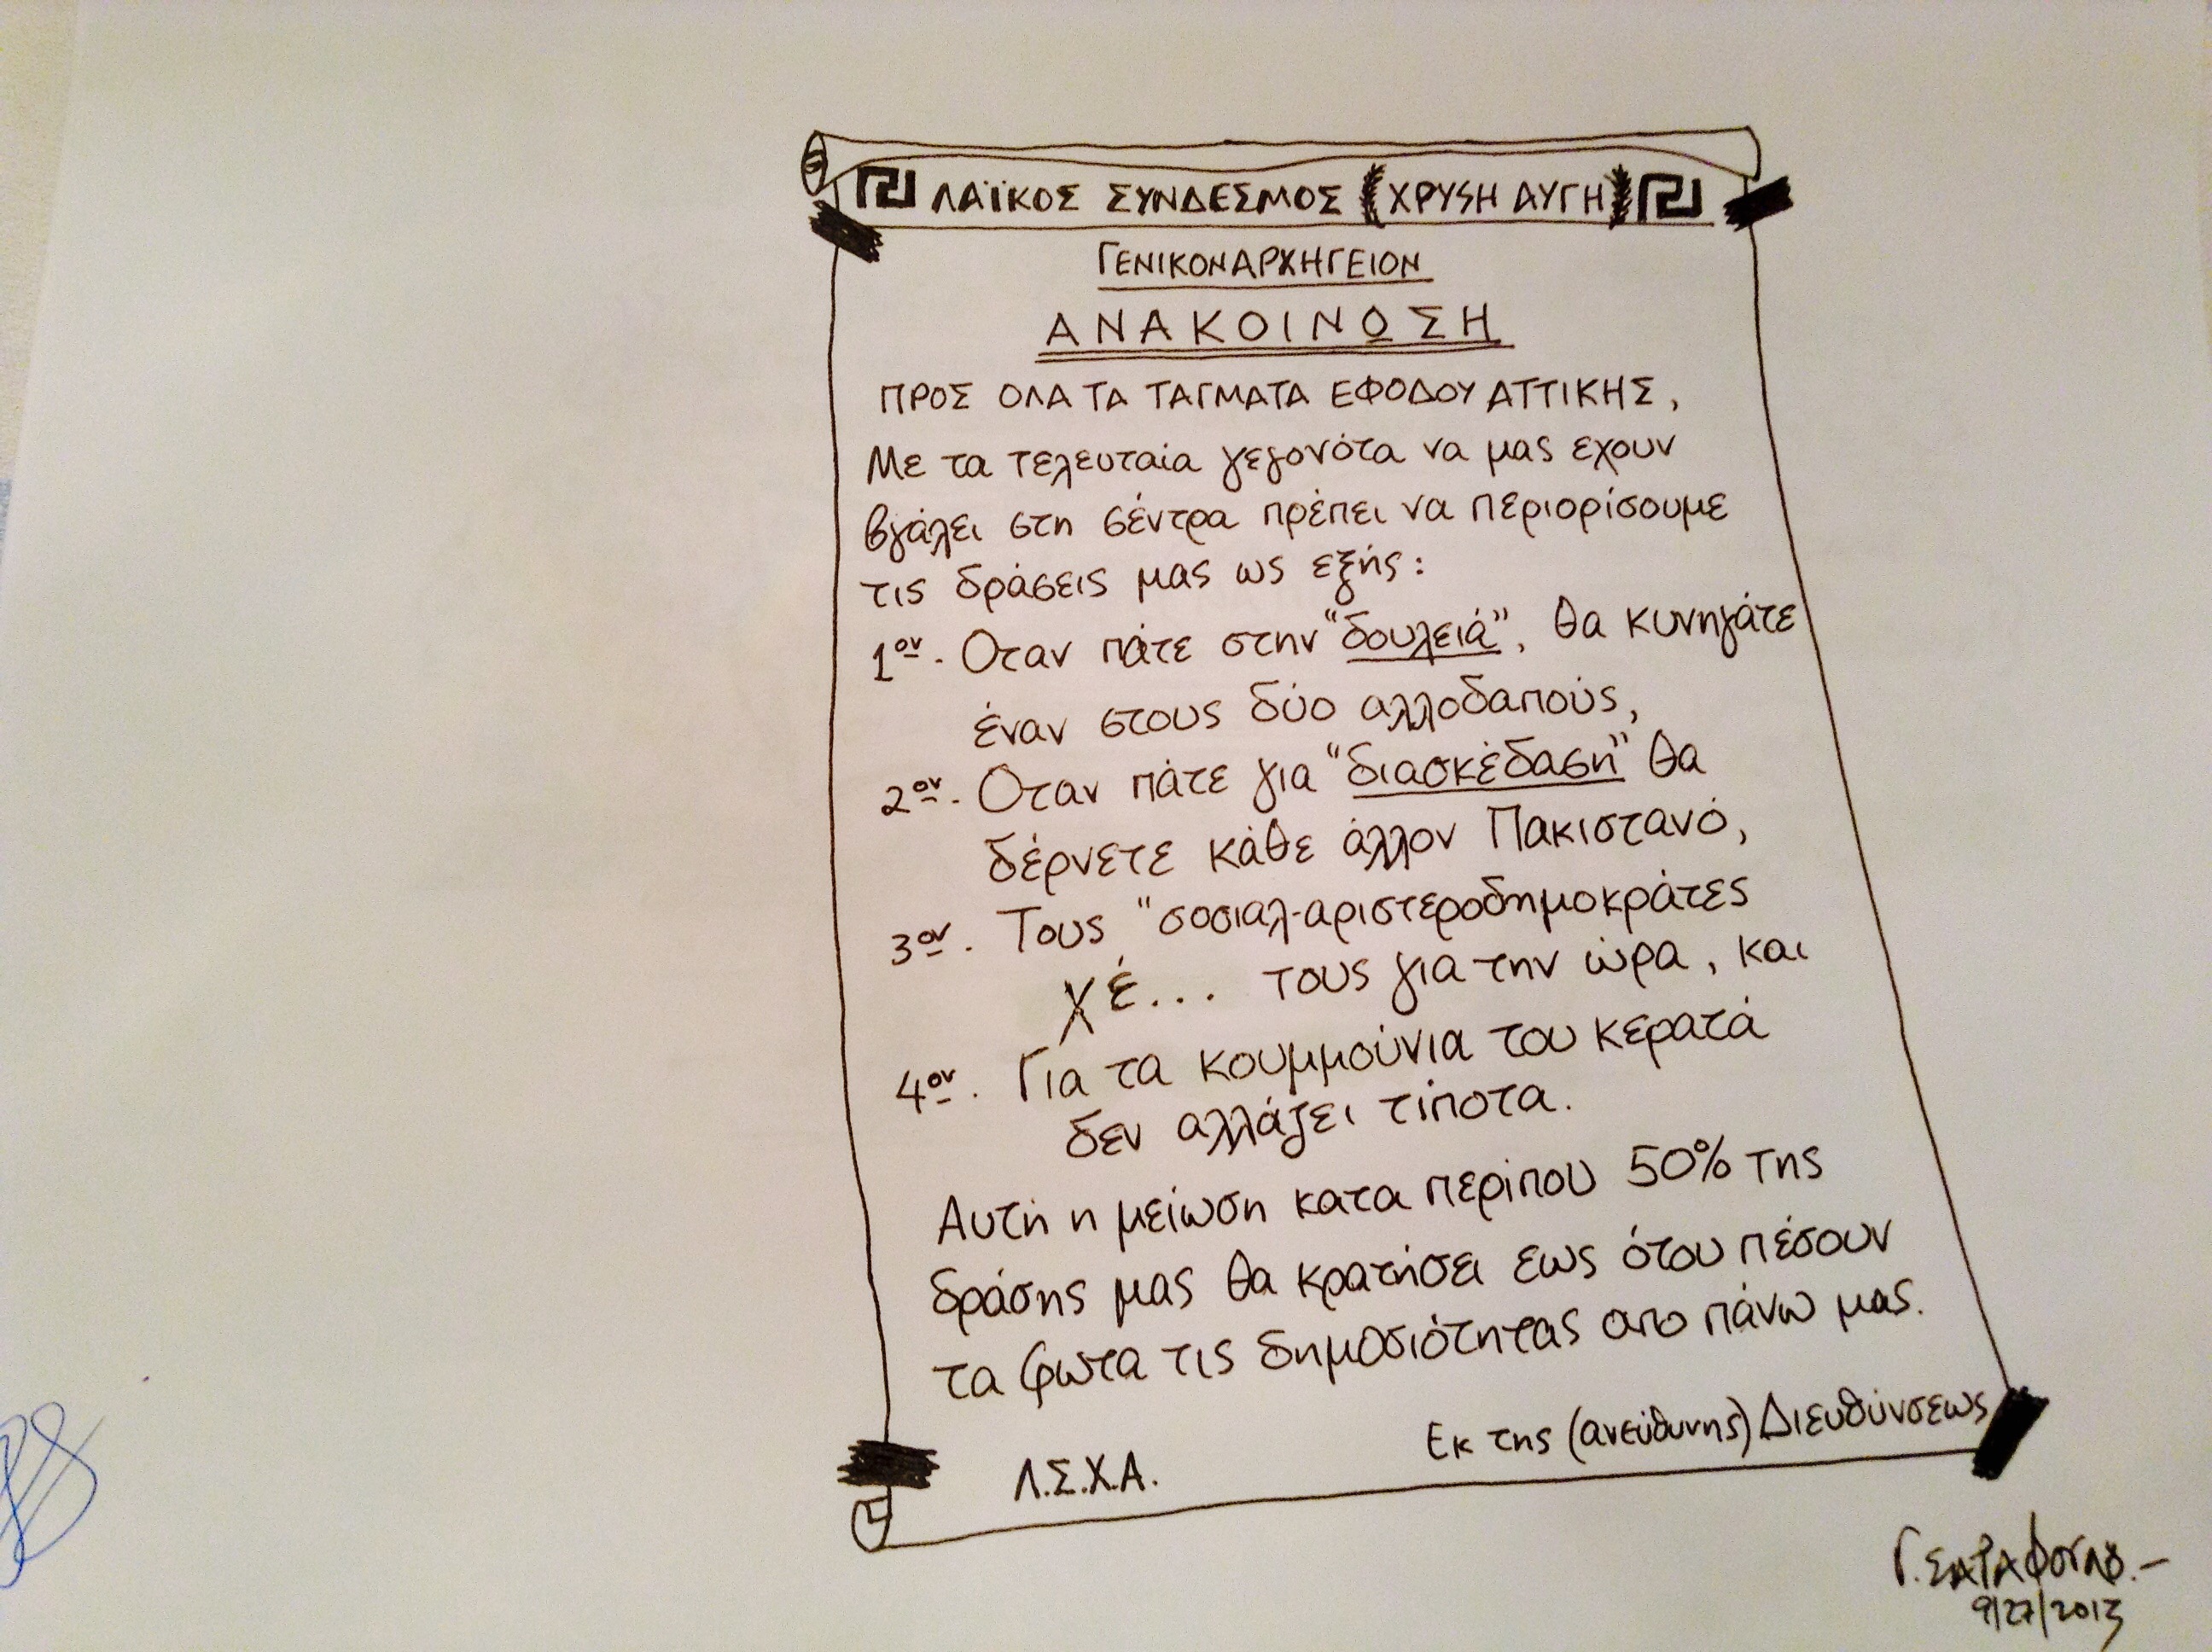 ΛΑΪΚΟΣ ΣΥΝΔΕΣΜΟΣ ΧΡΥSΗ ΑΥΓΗ
ΓΕΝΙΚΟΝΑΡΧΗΓΕΙΟΝ
ΑΝΑΚΟΙΝΩΣΗ
ΠΡΟΣ ΟΛΑ ΤΑ ΤΑΓΜΑΤΑ ΕΦΟΔΟΥ ΑΤΤΙΚΗΣ,
Με τα τελευταία γεγονότα να μας εχουν
βγάλει στη σέντρα πρέπει να περιορίσουμε
τις δράσεις μας ως εξής:
1ον. Οταν πάτε στην "δουλειά", θα κυνηγάτε
έναν στους δύο αλλοδαπούς,
2ον. Οταν πάτε για "διασκέδαση" θα
δέρνετε κάθε άλλον Πακιστανό,
3ον. Τους "σοσιαλ-αριστεροδημοκράτες
χέ... τους για την ώρα, και
4ον. Για τα κουμμούνια του κερατά
δεν αλλάζει τίποτα.
Αυτή η μείωση κατα περίπου 50% της
δράσης μας θα κρατήσει εως ότου πέσουν
τα φωτα τις δημοσιότητας απο πάνω μας.
Εκ της (ανεύθυνης) Διευθύνσεως
Λ.Σ.Χ.Α.
9/27/2013